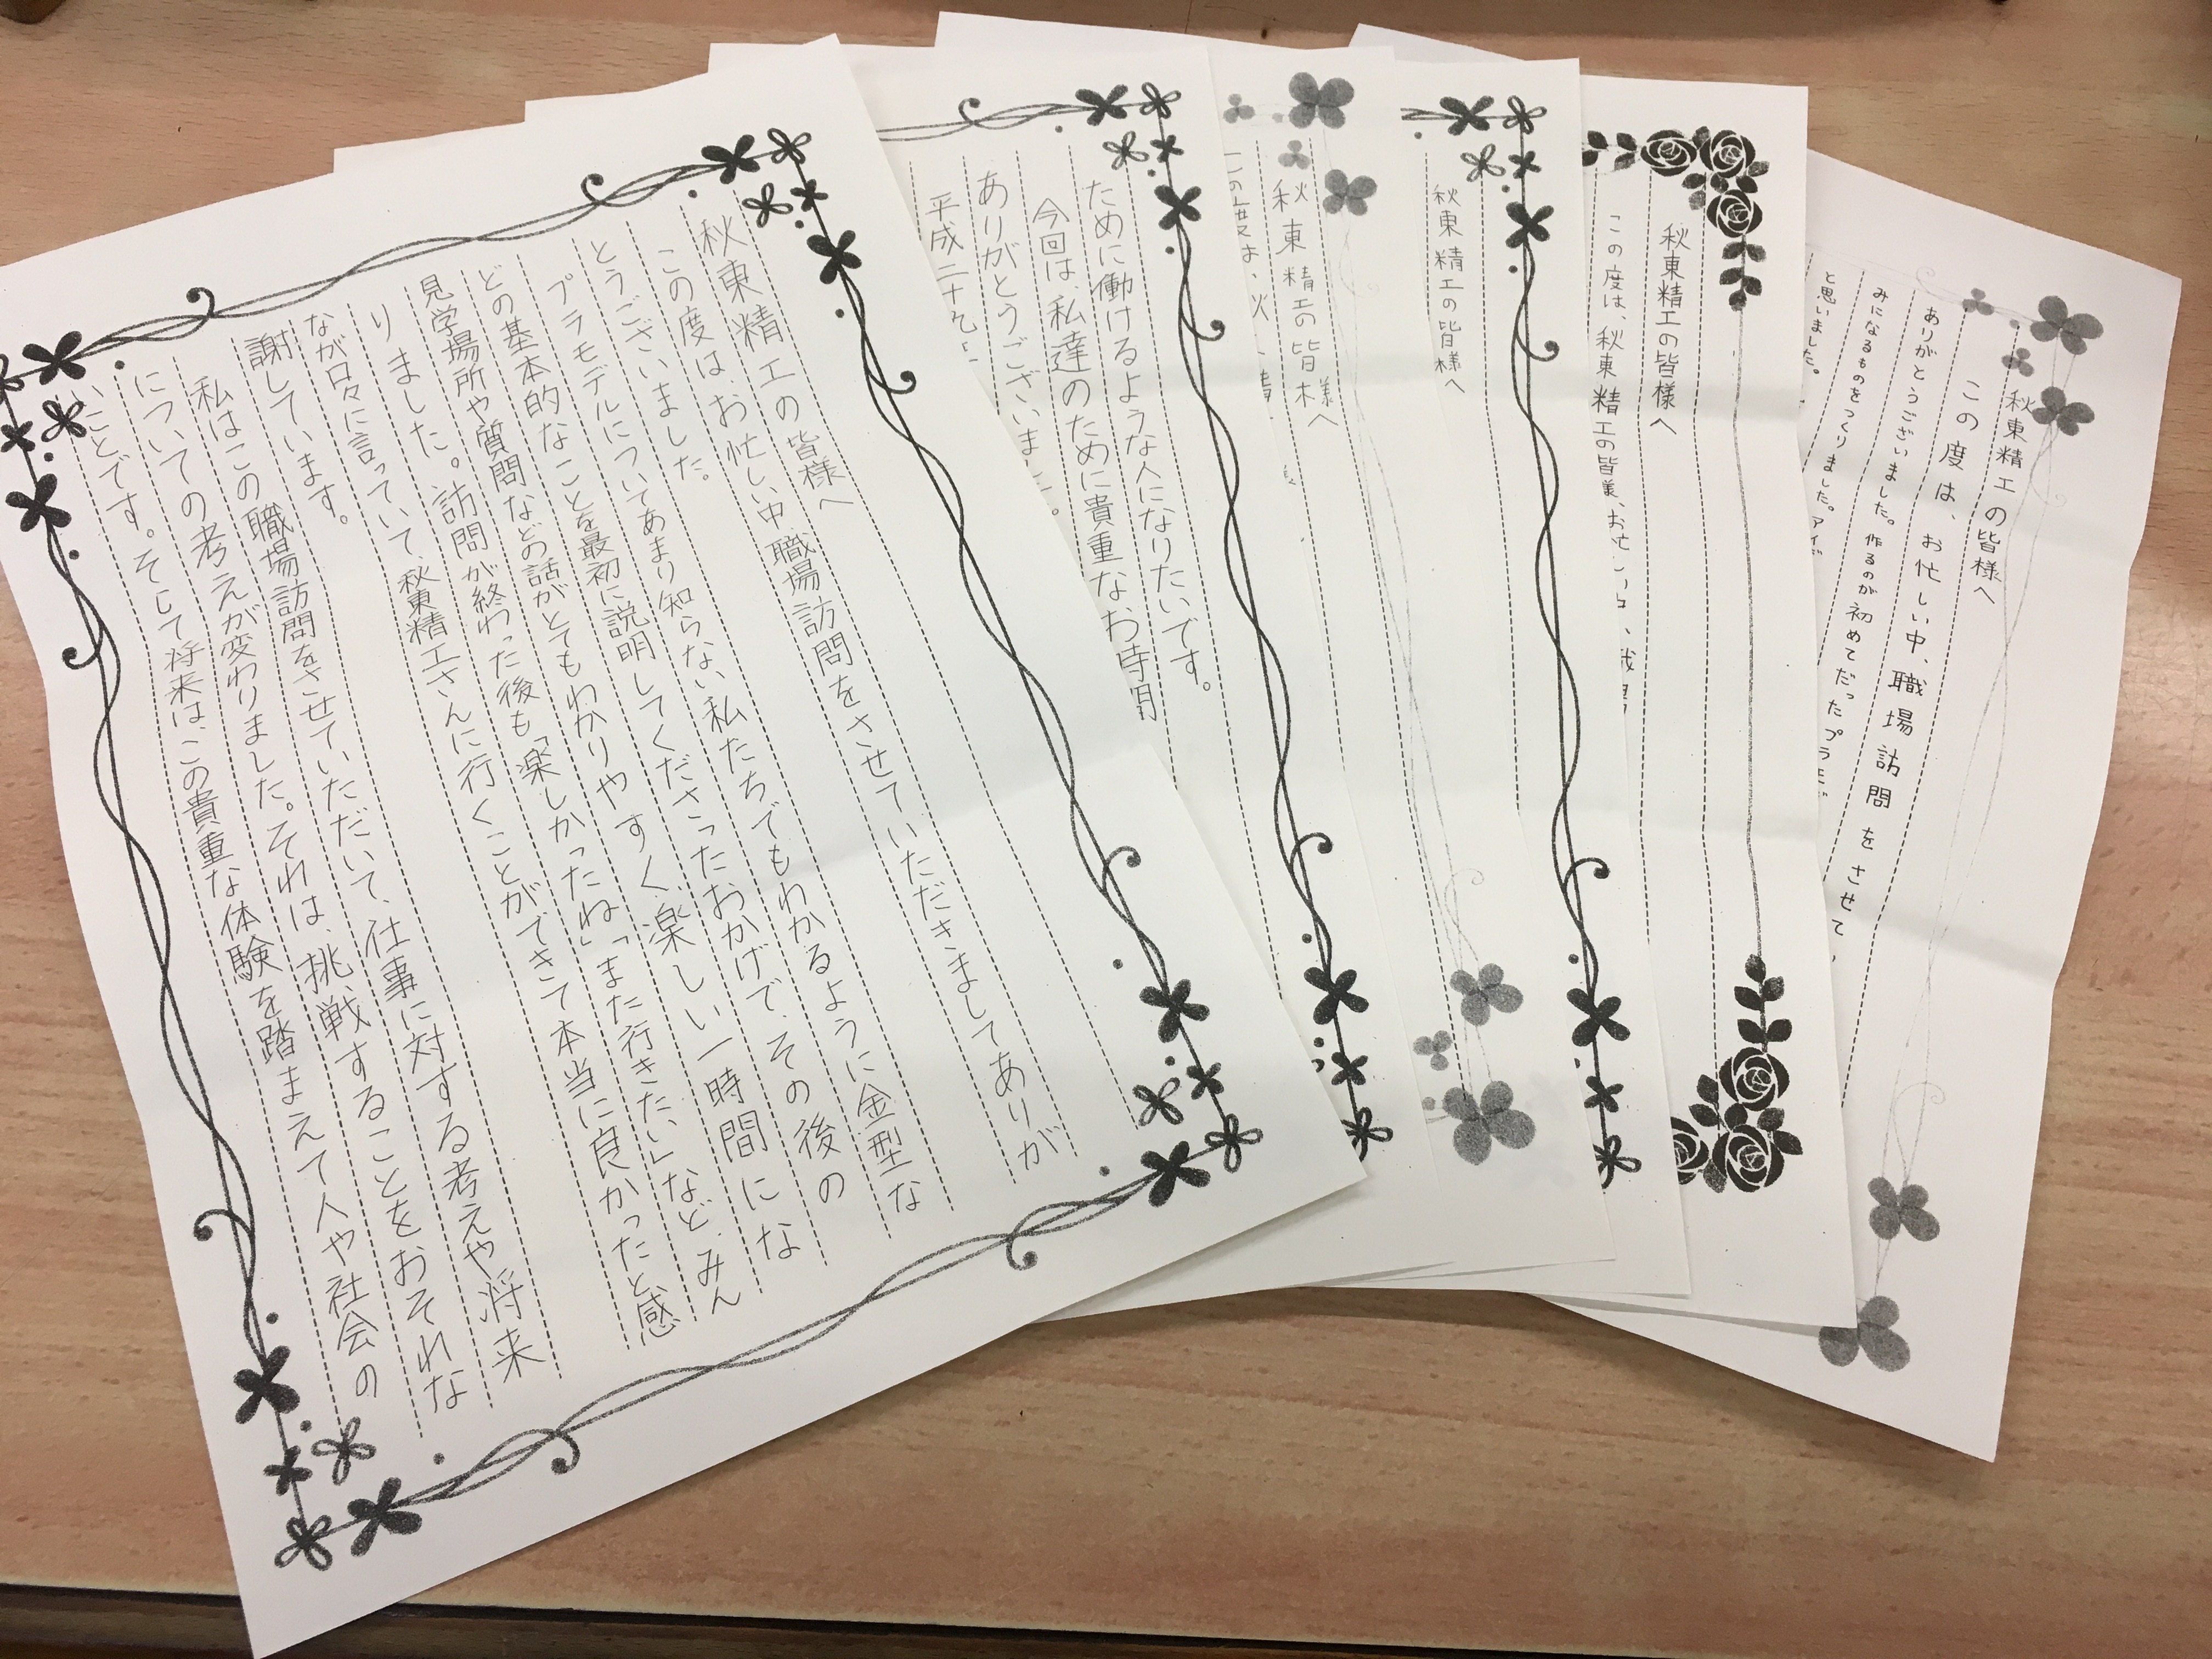 秋東精工の皆様へ
この度は、お忙しい中、職場訪問をさせていただきましてありが
とうございました。
プラモデルについてあまり知らない私たちでもわかるように金型な
どの基本的なことを最初に説明してくださったおかげで、その後の
見学場所や質問などの話がとてもわかりやすく、楽しい一時間にな
りました。訪問が終わった後も「楽しかったね」「また行きたい」など、みん
なが口々に言っていて、秋東精工さんに行くことができて本当に良かったと感
謝しています。
私はこの職場訪問をさせていただいて、仕事に対する考えや将来
についての考えが変わりました。それは、挑戦することをおそれな
いことです。そして将来は、この貴重な体験を踏まえて人や社会の
ために働けるような人になりたいです。
今回は、私達のために貴重なお時間
ありがとうございました。
平成二十九年
秋東精工の皆様へ
この度は、
秋東精工の皆様へ
秋東精工の皆様へ
この度は、秋東精工の皆様、お忙しい中、職場
秋東精工の皆様へ
この度は、お忙しい中、職場訪問をさせて
ありがとうございました。作るのが初めてだったプラモデ
みになるものをつくりました。アイデ
と思いました。